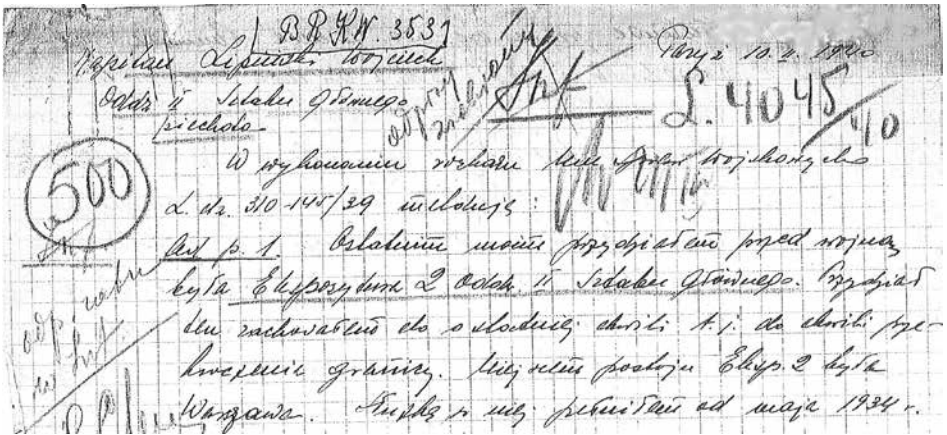 B.R.K.W. 3531
Kapitan Lipiński Wojciech
Paryż 10.II. 1940
Oddz. II Sztabu Głównego
piechota
L. 4045/40
500
W wykonaniu rozkazu Min. Spraw Wojskowych
L.dz. 310-145/39 melduję:
Ad p. 1. Ostatnim moim przydziałem przed wojną
była Ekspozytura 2 Oddz. II Sztabu Głównego. Przydział
ten zachowałem do ostatniej chwili t.j. do chwili prze-
kroczenia granicy. Miejscem postoju Eksp. 2 była
Warszawa. Służbę w niej pełniłem od maja 1934 r.